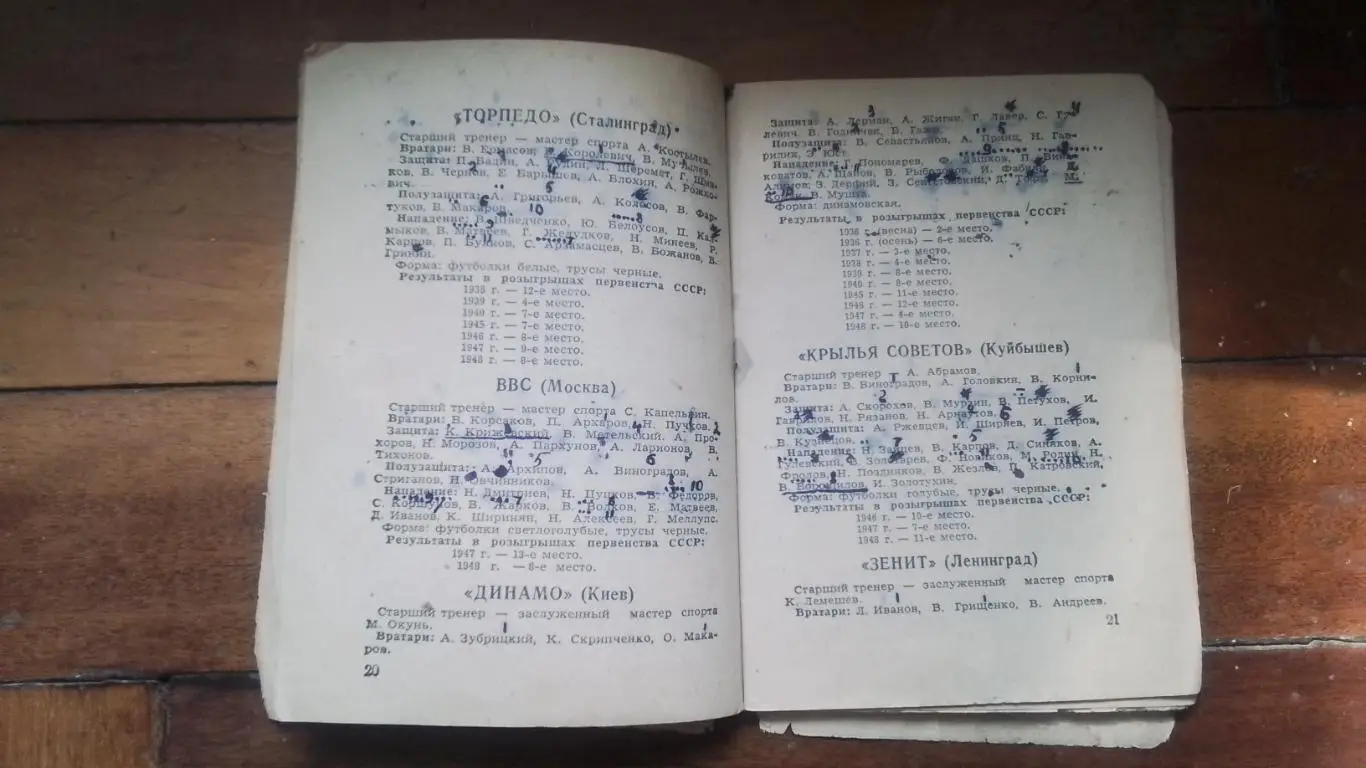 «ТОРПЕДО» (Сталинград)
Старший тренер — мастер спорта А. Костылев.
Вратари: В. Ермасов, Королевич, В. Мутылев.
Защита: П. Вадин, А. Л. Шеремет, Г.
ков, В. Чернов, Е. Барышев, А. Блохин, А. Рожко-
вич.
Полузащита: А. Григорьев, А. Колосов, В. Фар-
туков, В. Макаров.
Нападение: В. Шведченко, Ю. Белоусов, П. Кал-
мыков, В. Матвеев, Г. Желудков, Н. Минеев, Р.
Карпов, П. Буянов, С. Арзамасцев, В. Божанов, В.
Гринин.
Форма: футболки белые, трусы черные.
Результаты в розыгрышах первенства СССР:
1938 г. — 12-е место.
1939 г. — 4-е место.
1940 г. — 7-е место.
1945 г. — 7-е место.
1946 г. — 8-е место.
1947 г. — 9-е место.
1948 г. — 8-е место.
ВВС (Москва)
Старший тренер — мастер спорта С. Капелькин.
Вратари: В. Корсаков, П. Архаров, Н. Пучков.
Защита: К. Крижевский, В. Метельский, А. Про-
хоров, Н. Морозов, А. Пархунов, А. Ларионов, В.
Тихонов.
Полузащита: А. Архипов, А. Виноградов, А.
Стриганов, Н. Овчинников.
Нападение: Н. Дмитриев, Н. Пупков, В. Федоров,
С. Коршунов, В. Жарков, В. Волков, Е. Матвеев,
Д. Иванов, К. Ширинян, Н. Алексеев, Г. Меллупс.
Форма: футболки светлоголубые, трусы черные.
Результаты в розыгрышах первенства СССР:
1947 г. — 13-е место.
1948 г. — 8-е место.
«ДИНАМО» (Киев)
Старший тренер — заслуженный мастер спорта
М. Окунь.
Вратари: А. Зубрицкий, К. Скрипченко, О. Мака-
ров.
20
Защита: А. Лерман, А. Жиган, Г. Лавер, С. Г
левич, В. Годничек, В. Гажо.
Полузащита: В. Севастьянов, А. Принц, Н. Гав-
рилюк, Э. Юст.
Нападение: Г. Пономарев, Ф. Дашков, П. Вин
коватов, А. Щанов, В. И. Фабиан,
З. Дерфий, З. Сенгетовский, Д. М.
В. Мушта.
Форма: динамовская.
Результаты в розыгрышах первенства СССР:
1936 г. (весна) — 2-е место.
1936 г. (осень) — 6-е место.
1937 г. — 3-е место.
1938 г. — 4-е место.
1939 г. — 8-е место.
1940 г. — 8-е место.
1945 г. — 11-е место.
1946 г. — 12-е место.
1947 г. — 4-е место.
1948 г. — 10-е место.
«КРЫЛЬЯ СОВЕТОВ» (Куйбышев)
Старший тренер А. Абрамов.
Вратари: В. Виноградов, А. Головкин, В. Корни-
лов.
Защита: А. Скорохов, В. Мурзин, В. Петухов, И.
Гаврилов, Н. Рязанов, Н. Арнаутов.
Полузащита: А. Ржевцев, И. Ширяев, И. Петров,
В. Кузнецов.
Нападение: Н. Зайцев, В. Карпов, Д. Синяков, А.
Гулевский, В. Золотарев, Ф. Новиков, М. Родин, Н.
Фролов, Н. Поздняков, В. Жезлов, П. Катровский,
В. Ворошилов, И. Золотухин.
Форма: футболки голубые, трусы черные.
Результаты в розыгрышах первенства СССР:
1946 г. — 10-е место.
1947 г. — 7-е место.
1948 г. — 11-е место.
«ЗЕНИТ» (Ленинград)
Старший тренер — заслуженный мастер спорта
К. Лемешев.
Вратари: Л. Иванов, В. Грищенко, В. Андреев.
21